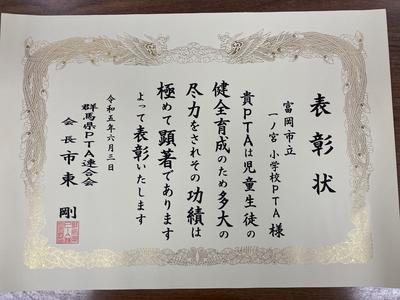 表彰状
富岡市立
一ノ宮小学校PTA様
貴PTAは児童生徒の
健全育成のため多大の
尽力をされその功績は
極めて顕著であります
よって表彰いたします
令和五年六月三日
群馬県PTA連合会
会長 市東 剛